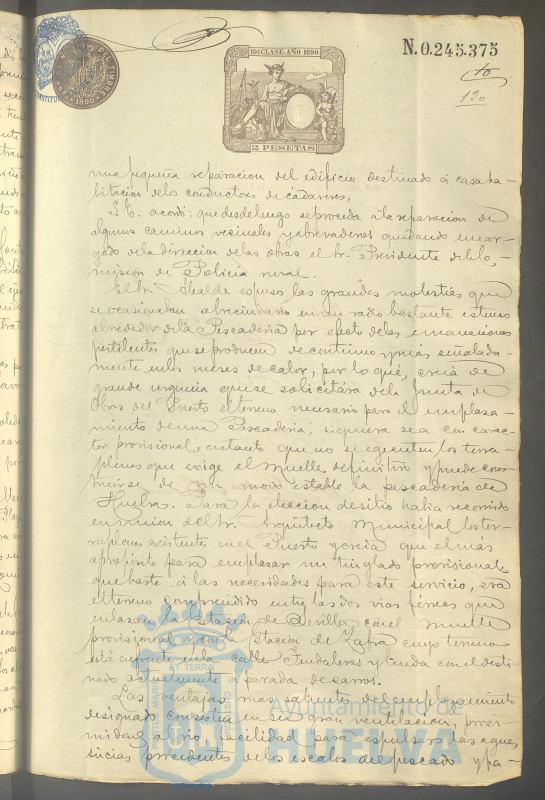 10ª CLASE.-AÑO 1890
N.0.245.375
2 PESETAS
190
una pequeña reparacion del edificio destinado á casa ha-
bitacion de los conductores de cadáveres.
S. E. acordó: que desde luego se proceda a la reparacion de
algunos caminos vecinales y abrevaderos quedando encar-
gado de la direccion de las obras el Sr. Presidente de la Co-
mision de Policia rural.
El Sr. Alcalde espuso las grandes molestias que
se ocasionaban al vecindario en un radio bastante estenso
alrededor de la Pescaderia por efecto de las emanaciones
pestilentes que se producen de contínuo y más señalada-
mente en los meses de calor, por lo que, creia de
grande urgencia que se solicitára de la Junta de
Obras del Puerto el terreno necesario para el emplaza-
miento de una Pescaderia, siquiera sea con carac-
ter provisional, en tanto que no se ejecuten los terra-
plenes que exige el muelle definitivo y puede cons-
truirse de un modo estable la pescaderia de
Huelva. Para la eleccion de sitio habia recorrido
en union del Sr. Arquitecto Municipal los ter-
raplenes existentes en el Puerto y creia que el más
apropósito para emplazar un tinglado provisional
que baste á las necesidades para este servicio, era
el terreno comprendido entre las dos vias férreas que
enlazan la Estacion de Sevilla con el muelle
provisional y con la Estacion de Zafra cuyo terreno
está en la calle y linda con el desti-
nado actualmente á parada de carros.
Las ventajas mas salientes del emplazamiento
designado consisten en su gran ventilacion, proxi-
midad al rio, facilidad para espulsar las aguas
sucias procedentes de los escalos del pescado y pa-
Ayuntamiento de
HUELVA